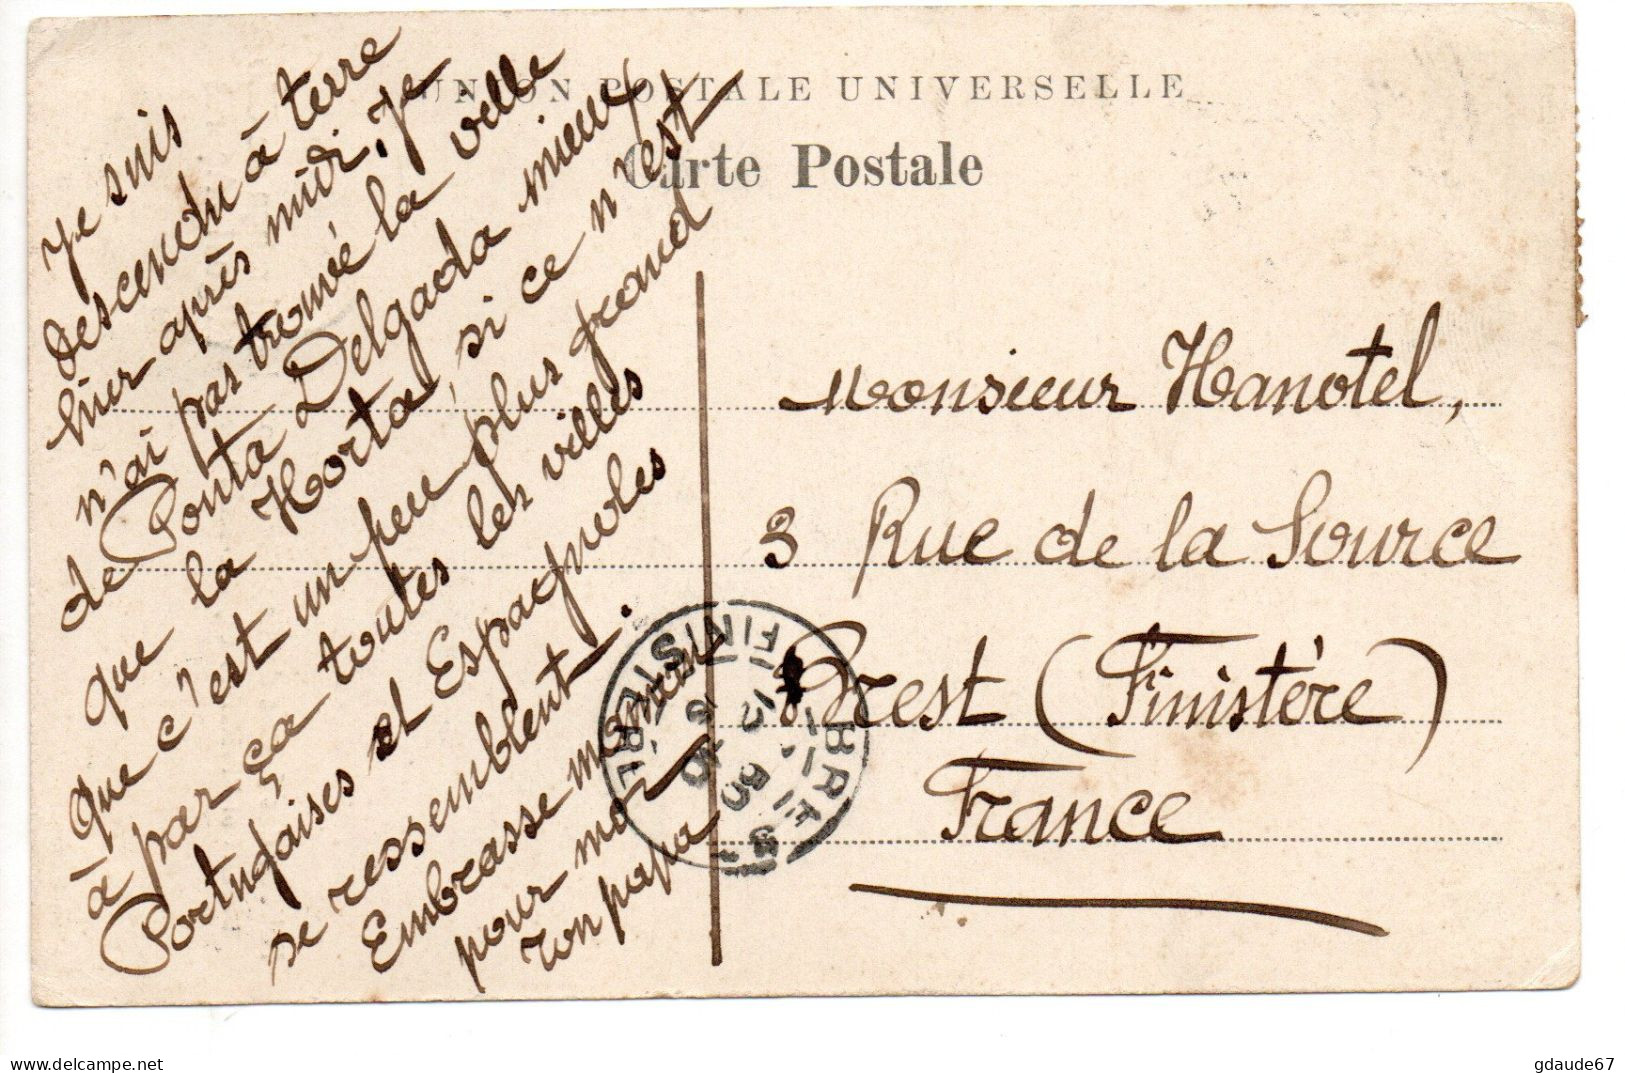 UNION POSTALE UNIVERSELLE
Carte Postale
Je suis
descendu à terre
hier après midi. Je
n'ai pas trouvé la ville
de Ponta Delgada mieux
que la Horta, si ce n'est
que c'est un peu plus grand
à par ça toutes les villes
Portugaises et Espagnoles
se ressemblent.
Embrasse maman
pour moi
Ton papa
Monsieur Hanotel,
3 Rue de la Source
Brest (Finistère)
France
BREST
FINISTÈRE
gdaude67
delcampe.net